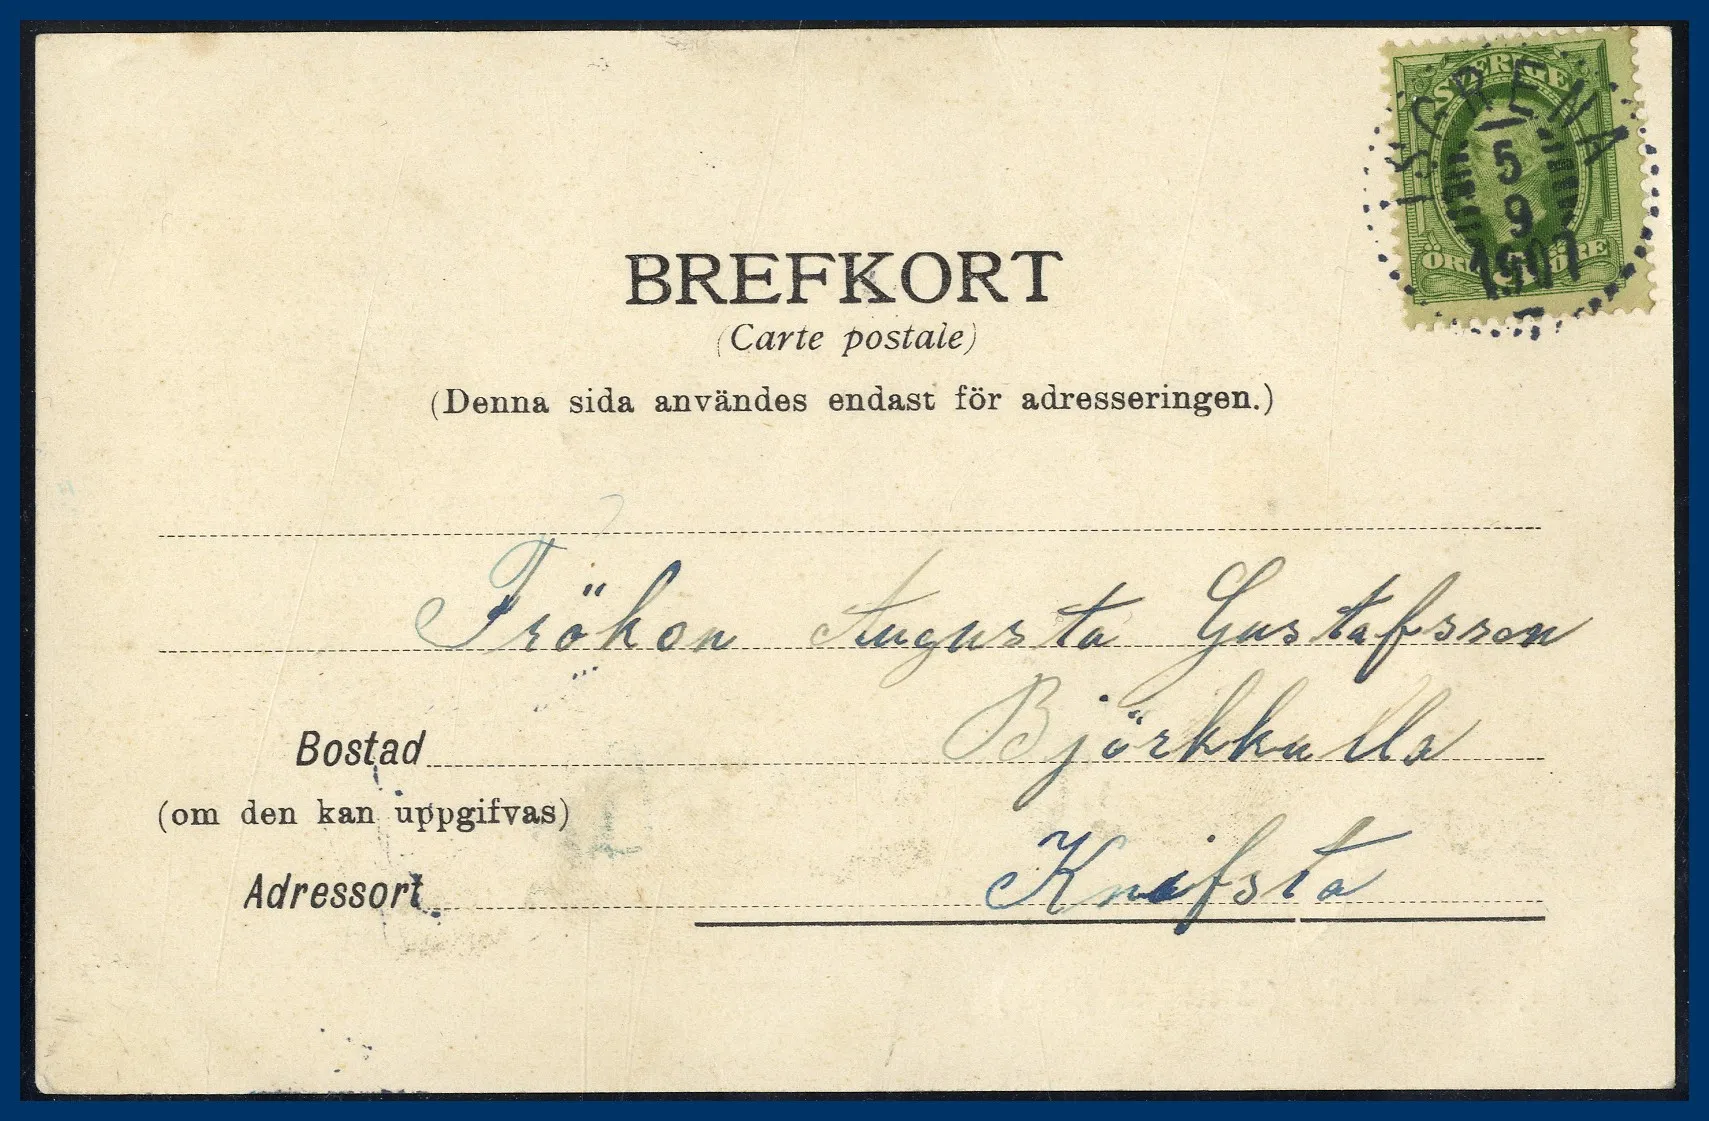 SVERIGE
ISGRENA
5
9
1901
ÖRE ÖRE
BREFKORT
(Carte postale)
(Denna sida användes endast för adresseringen.)
Fröken Augusta Gustafsson
Bostad Björkkulla
(om den kan uppgifvas)
Adressort Knifsta